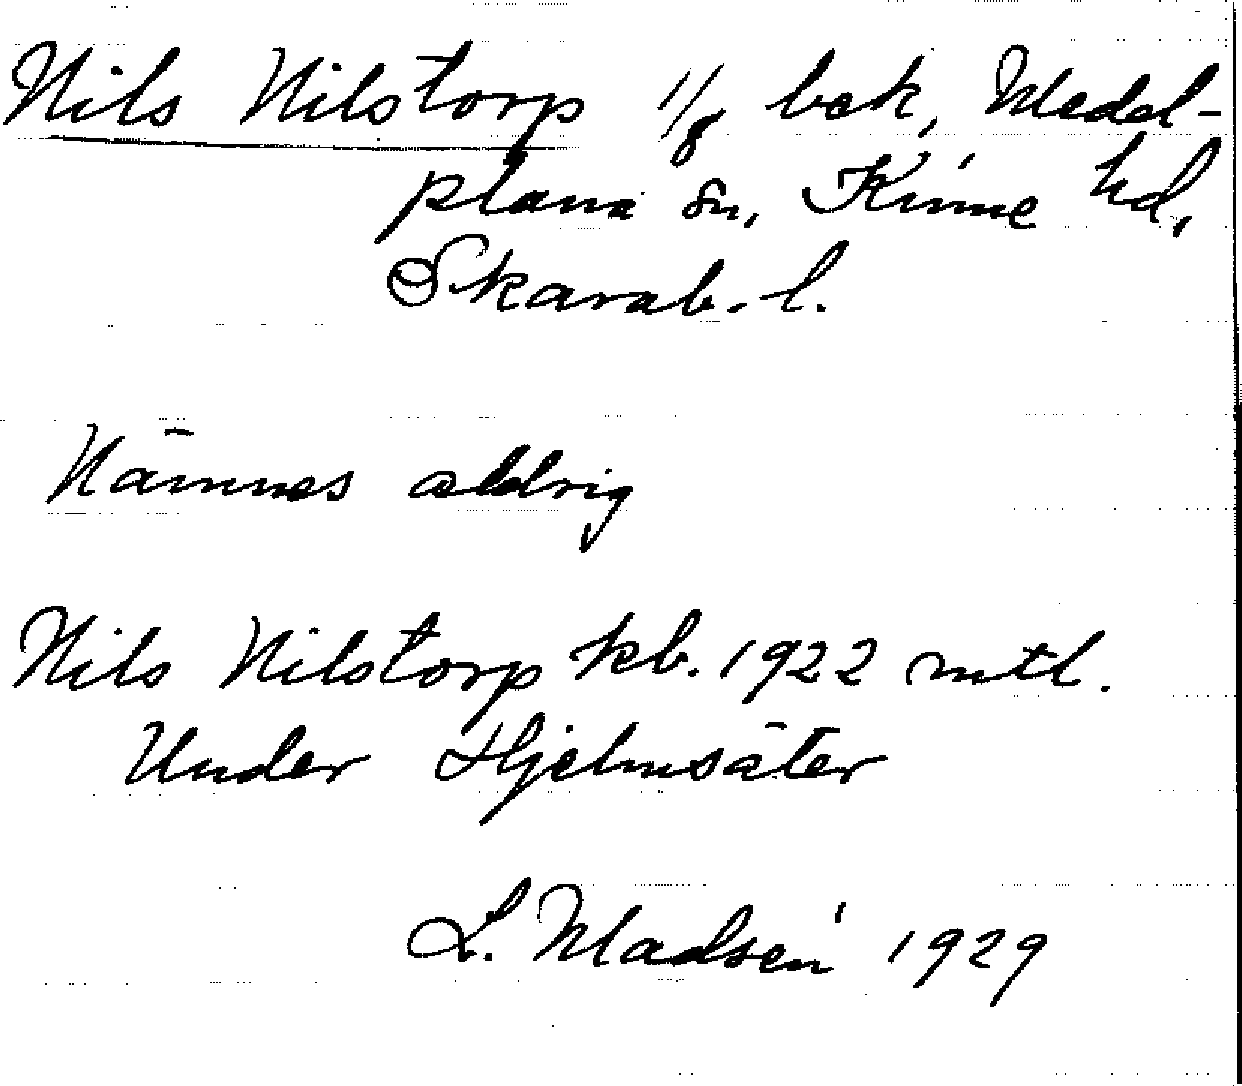 Nils Nilstorp 1/8 bek, Medel-
plana sn, Kinne hd,
Skarab. l.
Nämnes aldrig
Nils Nilstorp kb. 1922 mtl.
Under Hjelmsäter
L. Madsén 1929